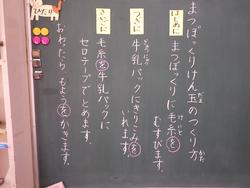 まつぼっくりけん玉のつくり方
だま
かた
はじめに
まつぼっくりに毛糸を
けいと
むすびます。
つぎに
牛乳パックにきりこみを
ぎゅうにゅう
いれます。
さいごに
毛糸を牛乳パックに
セロテープでとめます。
おわったら もようをかきます。
ひだり